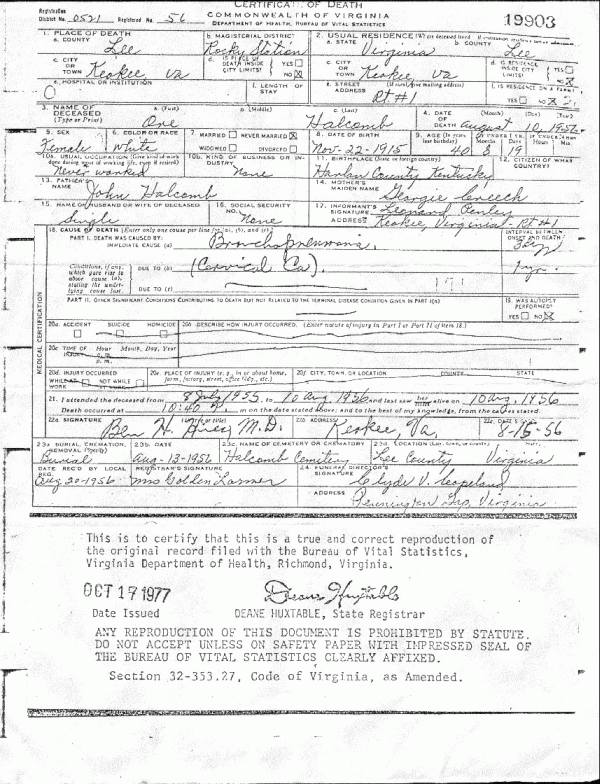 CERTIFICATE OF DEATH
COMMONWEALTH OF VIRGINIA
DEPARTMENT OF HEALTH, BUREAU OF VITAL STATISTICS
19903
Registration District No. 0521 Registered No. 56
1. PLACE OF DEATH
a. COUNTY Lee
b. MAGISTERIAL DISTRICT Rocky Station
2. USUAL RESIDENCE
a. STATE Virginia b. COUNTY Lee
c. CITY OR TOWN Keokee Va
d. IS PLACE OF DEATH INSIDE CITY LIMITS? YES NO
c. CITY OR TOWN Keokee, Va
d. IS RESIDENCE INSIDE CITY LIMITS? YES NO
e. HOSPITAL OR INSTITUTION
f. LENGTH OF STAY
e. STREET ADDRESS Rt #1
f. IS RESIDENCE ON A FARM? YES NO
3. NAME OF DECEASED (Type or Print)
a. (First) Ore b. (Middle) c. (Last) Halcomb
4. DATE OF DEATH (Month) (Day) (Year) August 10, 1956
5. SEX Female
6. COLOR OR RACE White
7. MARRIED NEVER MARRIED WIDOWED DIVORCED
8. DATE OF BIRTH Nov-22-1915
9. AGE 40 8 19
10a. USUAL OCCUPATION Never worked
10b. KIND OF BUSINESS OR INDUSTRY None
11. BIRTHPLACE (State or foreign country) Harlan County Kentucky
12. CITIZEN OF WHAT COUNTRY?
13. FATHER'S NAME John Halcomb
14. MOTHER'S MAIDEN NAME Georgie Creech
15. NAME OF HUSBAND OR WIFE OF DECEASED Single
16. SOCIAL SECURITY NO. None
17. INFORMANT'S SIGNATURE Leonard
ADDRESS Keokee, Virginia Rt #1
18. CAUSE OF DEATH (Enter only one cause per line for (a), (b), and (c).)
INTERVAL BETWEEN ONSET AND DEATH
PART I. DEATH WAS CAUSED BY:
IMMEDIATE CAUSE (a)
Conditions, if any, which gave rise to above cause (a), stating the underlying cause last.
DUE TO (b) (Cervical Ca). 1 yr.
DUE TO (c) 171
PART II. OTHER SIGNIFICANT CONDITIONS CONTRIBUTING TO DEATH BUT NOT RELATED TO THE TERMINAL DISEASE CONDITION GIVEN IN PART I(a)
19. WAS AUTOPSY PERFORMED? YES NO
MEDICAL CERTIFICATION
20a. ACCIDENT SUICIDE HOMICIDE
20b. DESCRIBE HOW INJURY OCCURRED. (Enter nature of injury in Part I or Part II of item 18.)
20c. TIME OF INJURY Hour Month, Day, Year a.m. p.m.
20d. INJURY OCCURRED WHILE AT WORK NOT WHILE AT WORK
20e. PLACE OF INJURY (e. g., in or about home, farm, factory, street, office bldg., etc.)
20f. CITY, TOWN, OR LOCATION COUNTY STATE
21. I attended the deceased from 8 July 1955 to 10 Aug. 1956 and last saw her alive on 10 Aug. 1956
Death occurred at 10:40 P. m on the date stated above; and to the best of my knowledge, from the causes stated.
22a. SIGNATURE (Degree or title) Ben H. M.D.
22b. ADDRESS Keokee, Va.
22c. DATE SIGNED 8-15-56
23a. BURIAL, CREMATION, REMOVAL (Specify) Burial
23b. DATE Aug-13-1956
23c. NAME OF CEMETERY OR CREMATORY Halcomb Cemetery
23d. LOCATION Lee County Virginia
DATE REC'D BY LOCAL REG. Aug 20-1956
REGISTRAR'S SIGNATURE Mrs Golden Larmer
24. FUNERAL DIRECTOR'S SIGNATURE Clyde V. Copeland
ADDRESS Pennington Gap, Virginia
This is to certify that this is a true and correct reproduction of
the original record filed with the Bureau of Vital Statistics,
Virginia Department of Health, Richmond, Virginia.
OCT 17 1977
Deane Huxtable
Date Issued DEANE HUXTABLE, State Registrar
ANY REPRODUCTION OF THIS DOCUMENT IS PROHIBITED BY STATUTE.
DO NOT ACCEPT UNLESS ON SAFETY PAPER WITH IMPRESSED SEAL OF
THE BUREAU OF VITAL STATISTICS CLEARLY AFFIXED.
Section 32-353.27, Code of Virginia, as Amended.